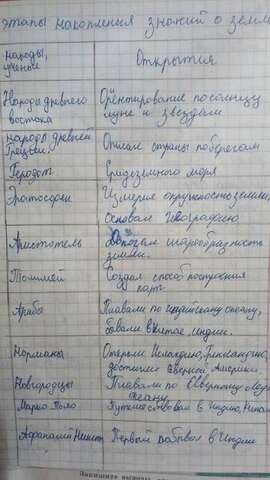 этапы накопления знаний о земле
народы, учёные Открытия
Народы древнего Ориентирование по солнцу
востока луне и звездам
народы древней Описали страны по берегам
Греции.
Геродот. Средиземного моря
Эратосфен Измерил окружность земли,
основал географию
Аристотель Доказал шарообразность
земли.
Птолемей Создал способ построения
карт
Арабы Плавали по индийскому океану,
бывали в Китае, индии.
Норманы Открыли Исландию, Гренландию,
достигли Северной Америки
Новгородцы Плавали по
океану
Марко Поло Путешествовал в Индию, Китай
Афанасий Никит Первый побывал в Индии